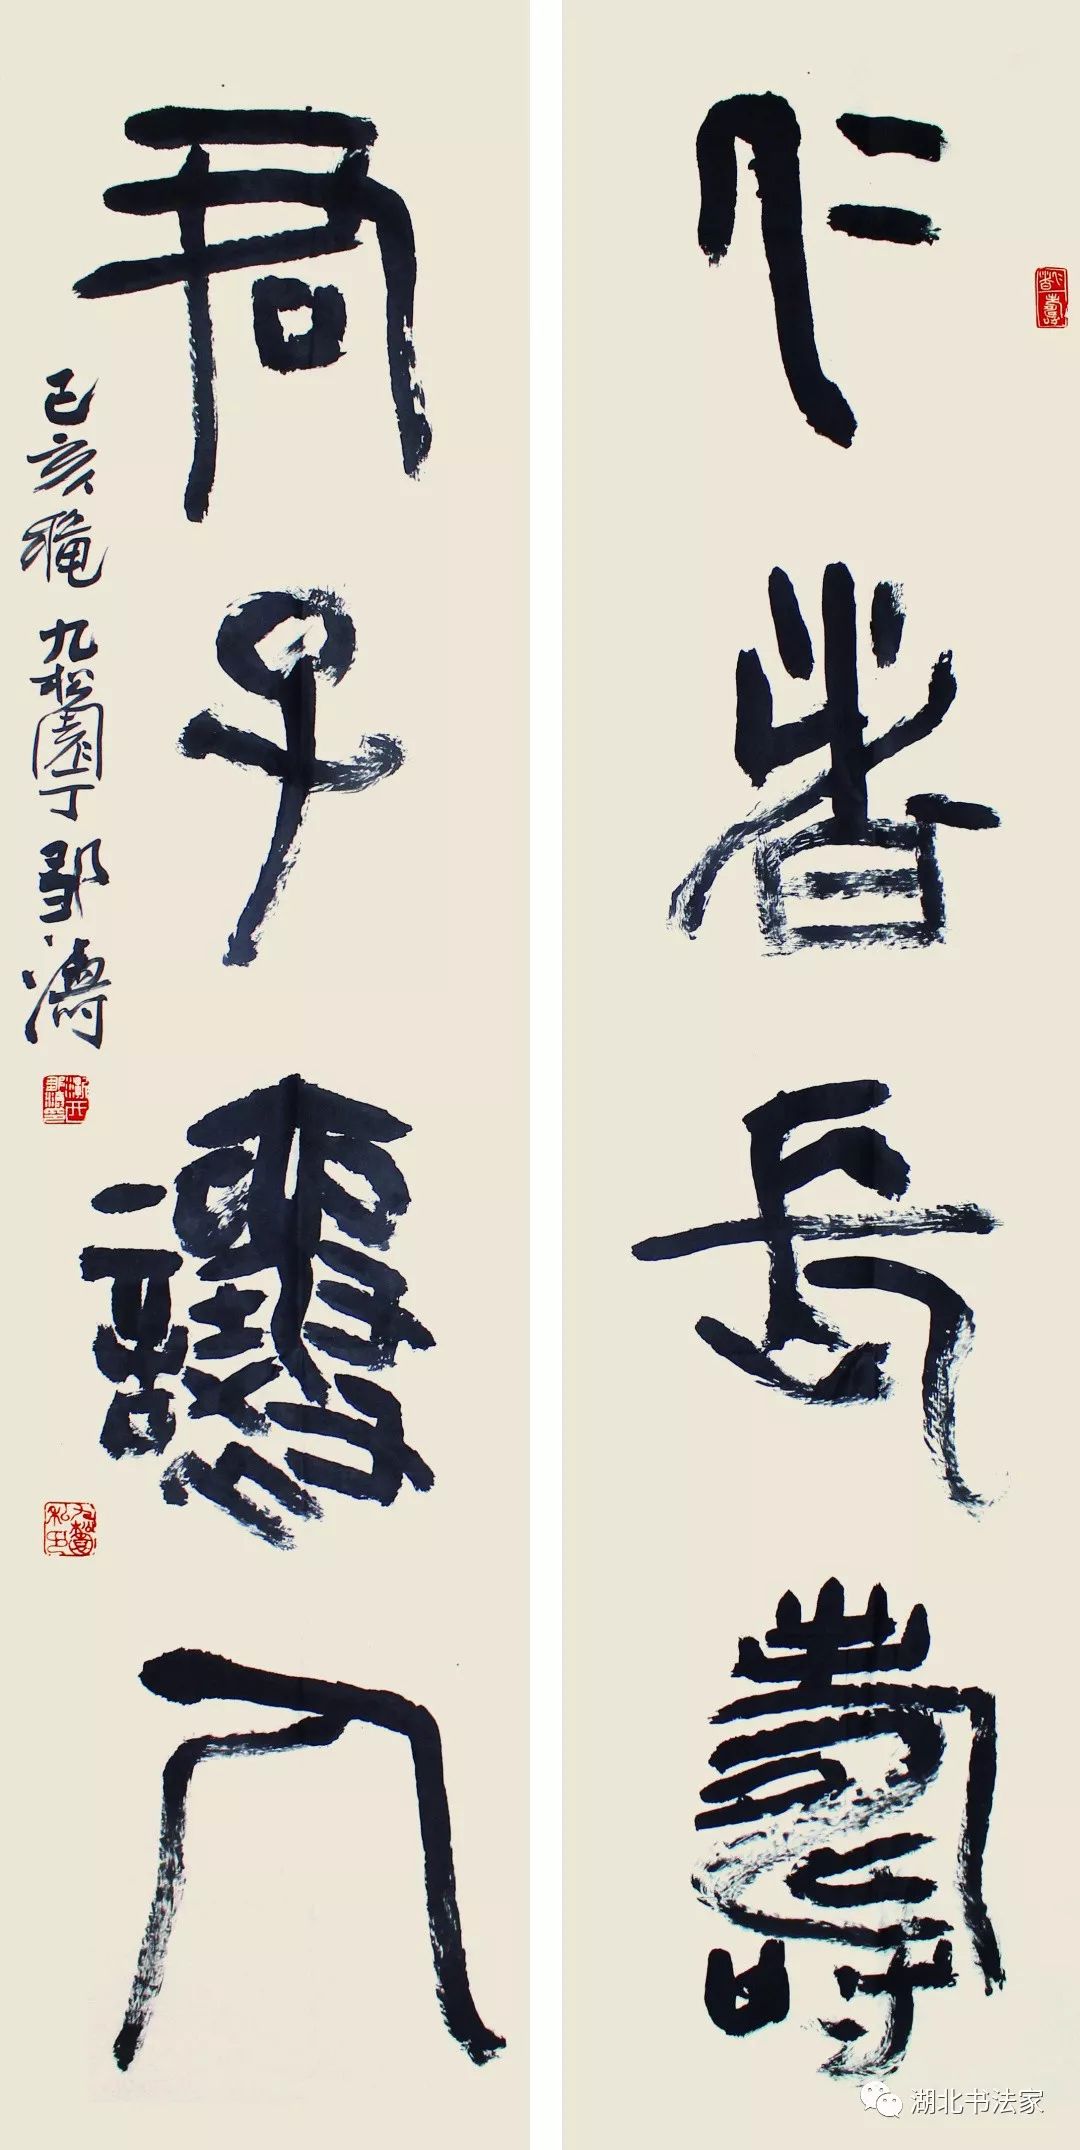 仁者長壽
君子讓人
己亥龝九松園丁鄒濤
仁者壽
湖北书法家